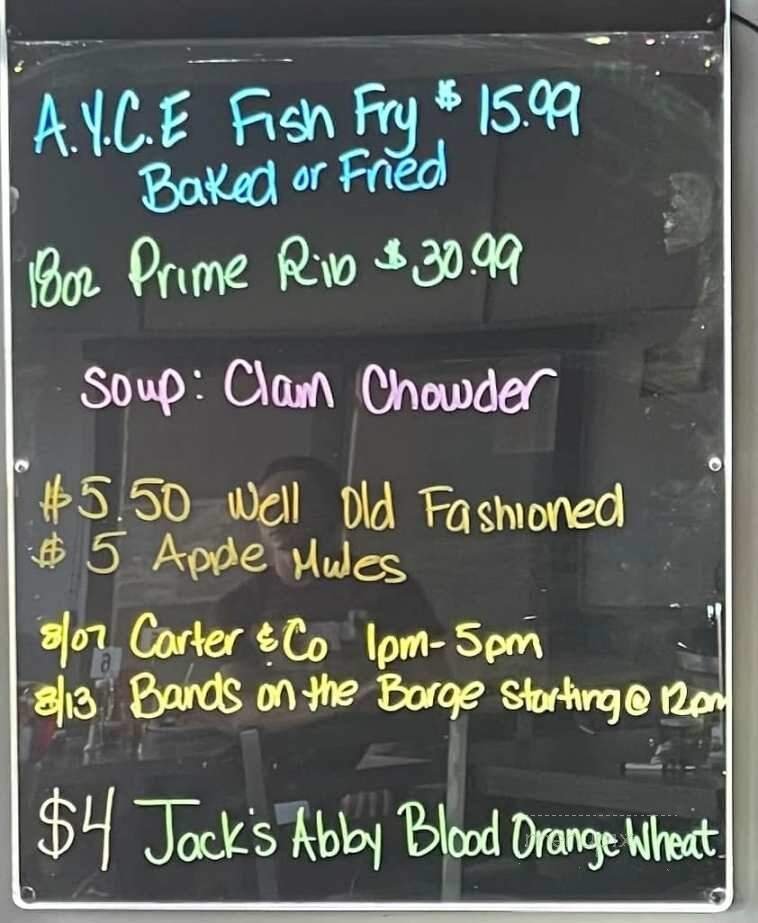 A.Y.C.E Fish Fry $15.99
Baked or Fried
18oz Prime Rib $30.99
Soup: Clam Chowder
$5.50 Well Old Fashioned
$5 Apple Mules
8/07 Carter & Co 1pm-5pm
8/13 Bands on the Barge starting @ 12pm
$4 Jack's Abby Blood Orange Wheat